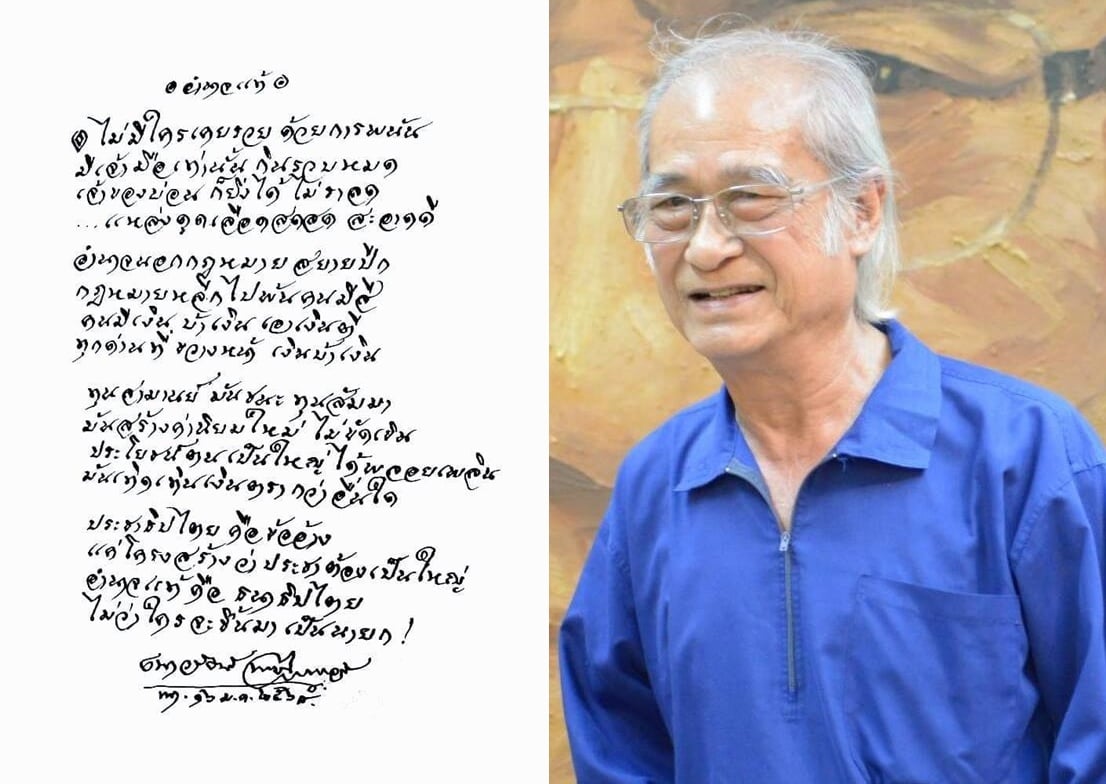 ๏ อำนาจแท้ ๏
๏ ไม่มีใครเคยรวย ด้วยการพนัน
มีเจ้ามือเท่านั้น กินรวบหมด
เจ้าของบ่อน ก็ยิ่งได้ ไม่ราลด
...แหล่งดูดเลือดสดสด สะอาดดี
อำนาจนอกกฎหมาย สยายปีก
กฎหมายหลีกไปพ้นคนมีสี
คนมีเงิน บ้าเงิน เอาเงินตี
ทุกด่านที่ ขวางหน้า เงินบ้าเงิน
ทุนสามานย์ มันชนะ ทุนสัมมา
มันสร้างค่านิยมใหม่ ไม่ขัดเขิน
ประโยชน์ตนเป็นใหญ่ ได้พลอยเพลิน
มันเทิดเทินเงินตรา กว่าอื่นใด
ประชาธิปไตย คือข้ออ้าง
แค่โครงสร้างว่า ประชาต้องเป็นใหญ่
อำนาจแท้ คือ ธนาธิปไตย
ไม่ว่าใครจะขึ้นมา เป็นนายก!
เนาวรัตน์ พงษ์ไพบูลย์
พฤ. ๑๖ ม.ค. ๒๕๖๘